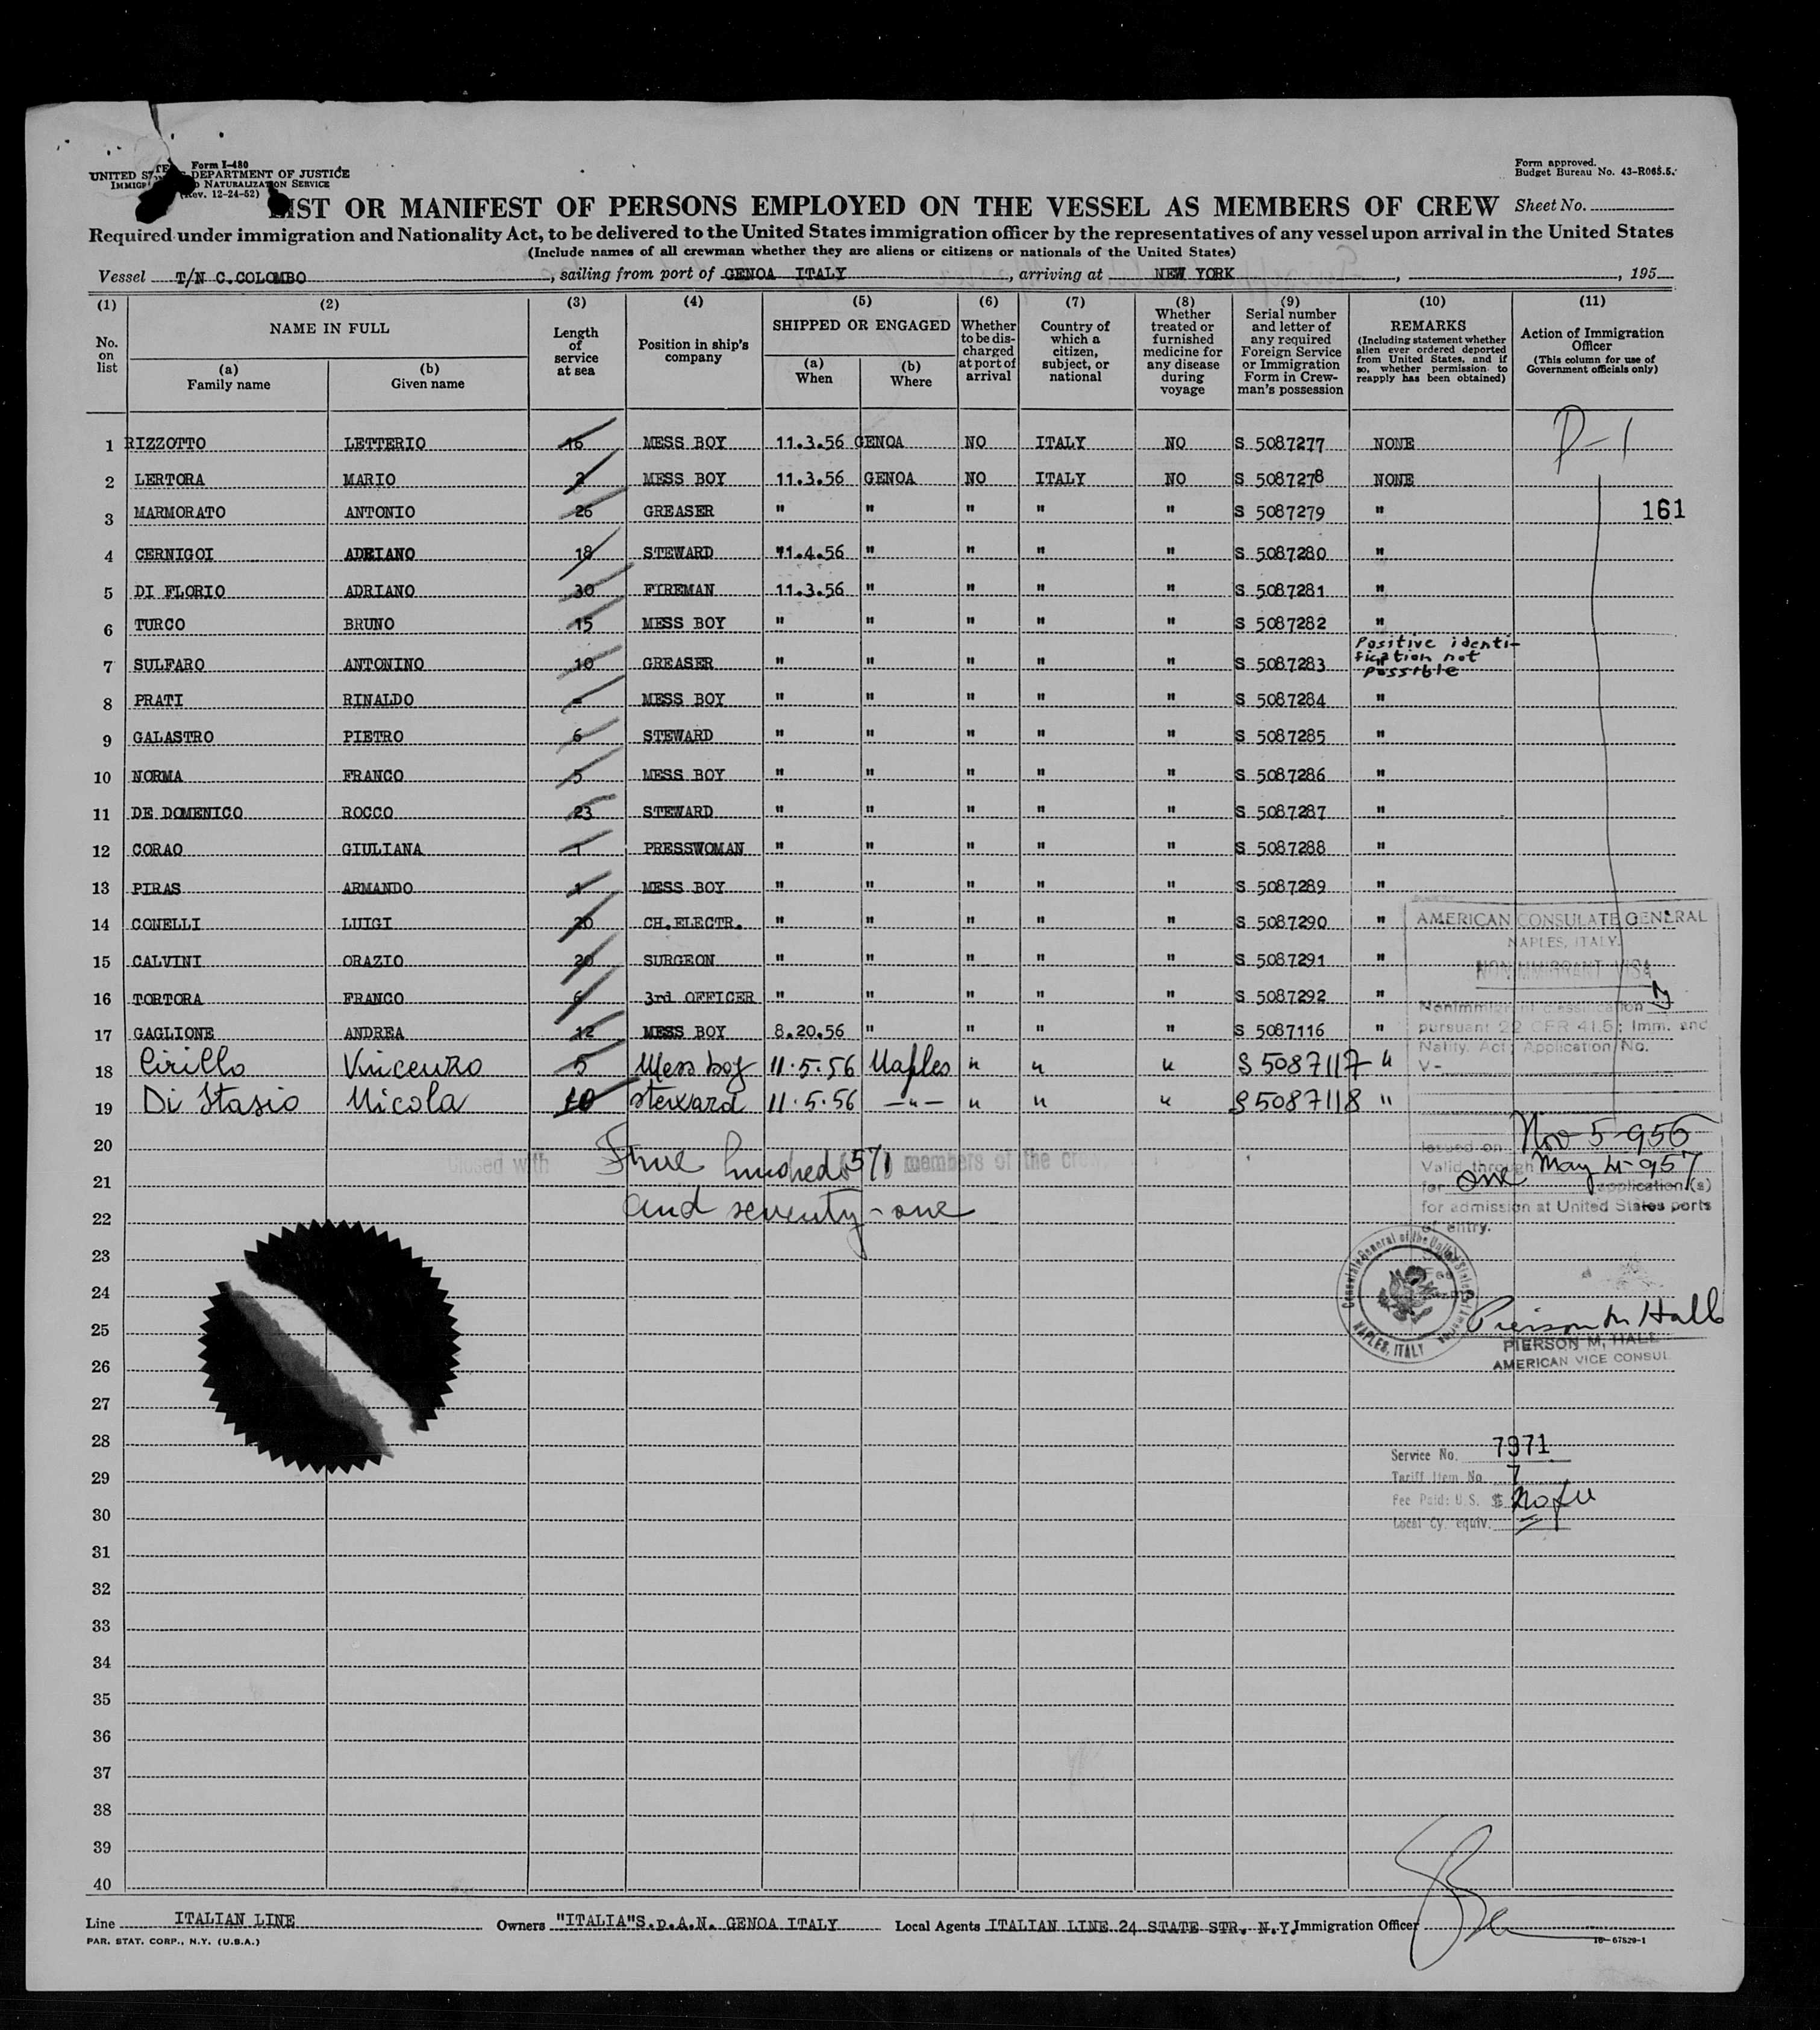 Form I-480
UNITED STATES DEPARTMENT OF JUSTICE
IMMIGRATION AND NATURALIZATION SERVICE
(Rev. 12-24-52)
Form approved.
Budget Bureau No. 43-R065.5.
LIST OR MANIFEST OF PERSONS EMPLOYED ON THE VESSEL AS MEMBERS OF CREW Sheet No.
Required under immigration and Nationality Act, to be delivered to the United States immigration officer by the representatives of any vessel upon arrival in the United States
(Include names of all crewman whether they are aliens or citizens or nationals of the United States)
Vessel T/N C.COLOMBO, sailing from port of GENOA ITALY, arriving at NEW YORK, , 195
(1) (2) (3) (4) (5) (6) (7) (8) (9) (10) (11)
No. on list
NAME IN FULL
(a) Family name
(b) Given name
Length of service at sea
Position in ship's company
SHIPPED OR ENGAGED
(a) When
(b) Where
Whether to be discharged at port of arrival
Country of which a citizen, subject, or national
Whether treated or furnished medicine for any disease during voyage
Serial number and letter of any required Foreign Service or Immigration Form in Crewman's possession
REMARKS
(Including statement whether alien ever ordered deported from United States, and if so, whether permission to reapply has been obtained)
Action of Immigration Officer
(This column for use of Government officials only)
D-1
1 RIZZOTTO LETTERIO 16 MESS BOY 11.3.56 GENOA NO ITALY NO S 5087277 NONE
2 LERTORA MARIO 2 MESS BOY 11.3.56 GENOA NO ITALY NO S 5087278 NONE
3 MARMORATO ANTONIO 26 GREASER " " " " " S 5087279 " 161
4 CERNIGOI ADRIANO 18 STEWARD 11.4.56 " " " " S 5087280 "
5 DI FLORIO ADRIANO 30 FIREMAN 11.3.56 " " " " S 5087281 "
6 TURCO BRUNO 15 MESS BOY " " " " " S 5087282 "
7 SULFARO ANTONINO 10 GREASER " " " " " S 5087283 Positive identification not possible
8 PRATI RINALDO - MESS BOY " " " " " S 5087284 "
9 GALASTRO PIETRO 6 STEWARD " " " " " S 5087285 "
10 NORMA FRANCO 5 MESS BOY " " " " " S 5087286 "
11 DE DOMENICO ROCCO 23 STEWARD " " " " " S 5087287 "
12 CORAO GIULIANA 1 PRESSWOMAN " " " " " S 5087288 "
13 PIRAS ARMANDO 1 MESS BOY " " " " " S 5087289 "
14 CONELLI LUIGI 20 CH.ELECTR. " " " " " S 5087290 "
15 CALVINI ORAZIO 20 SURGEON " " " " " S 5087291 "
16 TORTORA FRANCO 6 3rd OFFICER " " " " " S 5087292 "
17 GAGLIONE ANDREA 12 MESS BOY 8.20.56 " " " " S 5087116 "
18 Cirillo Vincenzo 5 Mess boy 11.5.56 Naples " " " S 5087117 "
19 Di Stasio Nicola 10 steward 11.5.56 -"- " " " S 5087118 "
20
21
22
23
24
25
26
27
28
29
30
31
32
33
34
35
36
37
38
39
40
Closed with Five hundred 571 members of the crew
and seventy-one
AMERICAN CONSULATE GENERAL
NAPLES, ITALY.
NONIMMIGRANT VISA
Nonimmigrant classification D
pursuant 22 CFR 41.5; Imm. and
Nality. Act; Application No.
V-
Issued on Nov 5-956
Valid through May 4-957
for one application(s)
for admission at United States ports
of entry.
NAPLES, ITALY
Pierson M Hall
PIERSON M. HALL
AMERICAN VICE CONSUL
Service No. 7971
Tariff Item No. 7
Fee Paid: U.S. $ no fee
Local Cy. equiv.
Line ITALIAN LINE Owners "ITALIA"S.p.A.N. GENOA ITALY Local Agents ITALIAN LINE 24 STATE STR. N.Y. Immigration Officer
PAR. STAT. CORP., N.Y. (U.S.A.)
16-67829-1